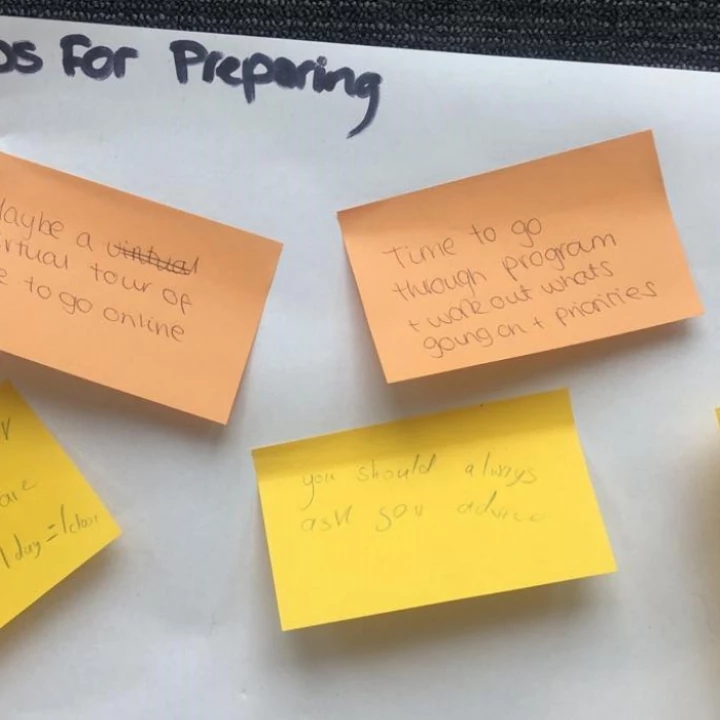 os For Preparing
aybe a virtual
irtual tour of
e to go online
Time to go
through program
+ work out whats
going on + priorities
you should always
ask sou advice
are
1 day =